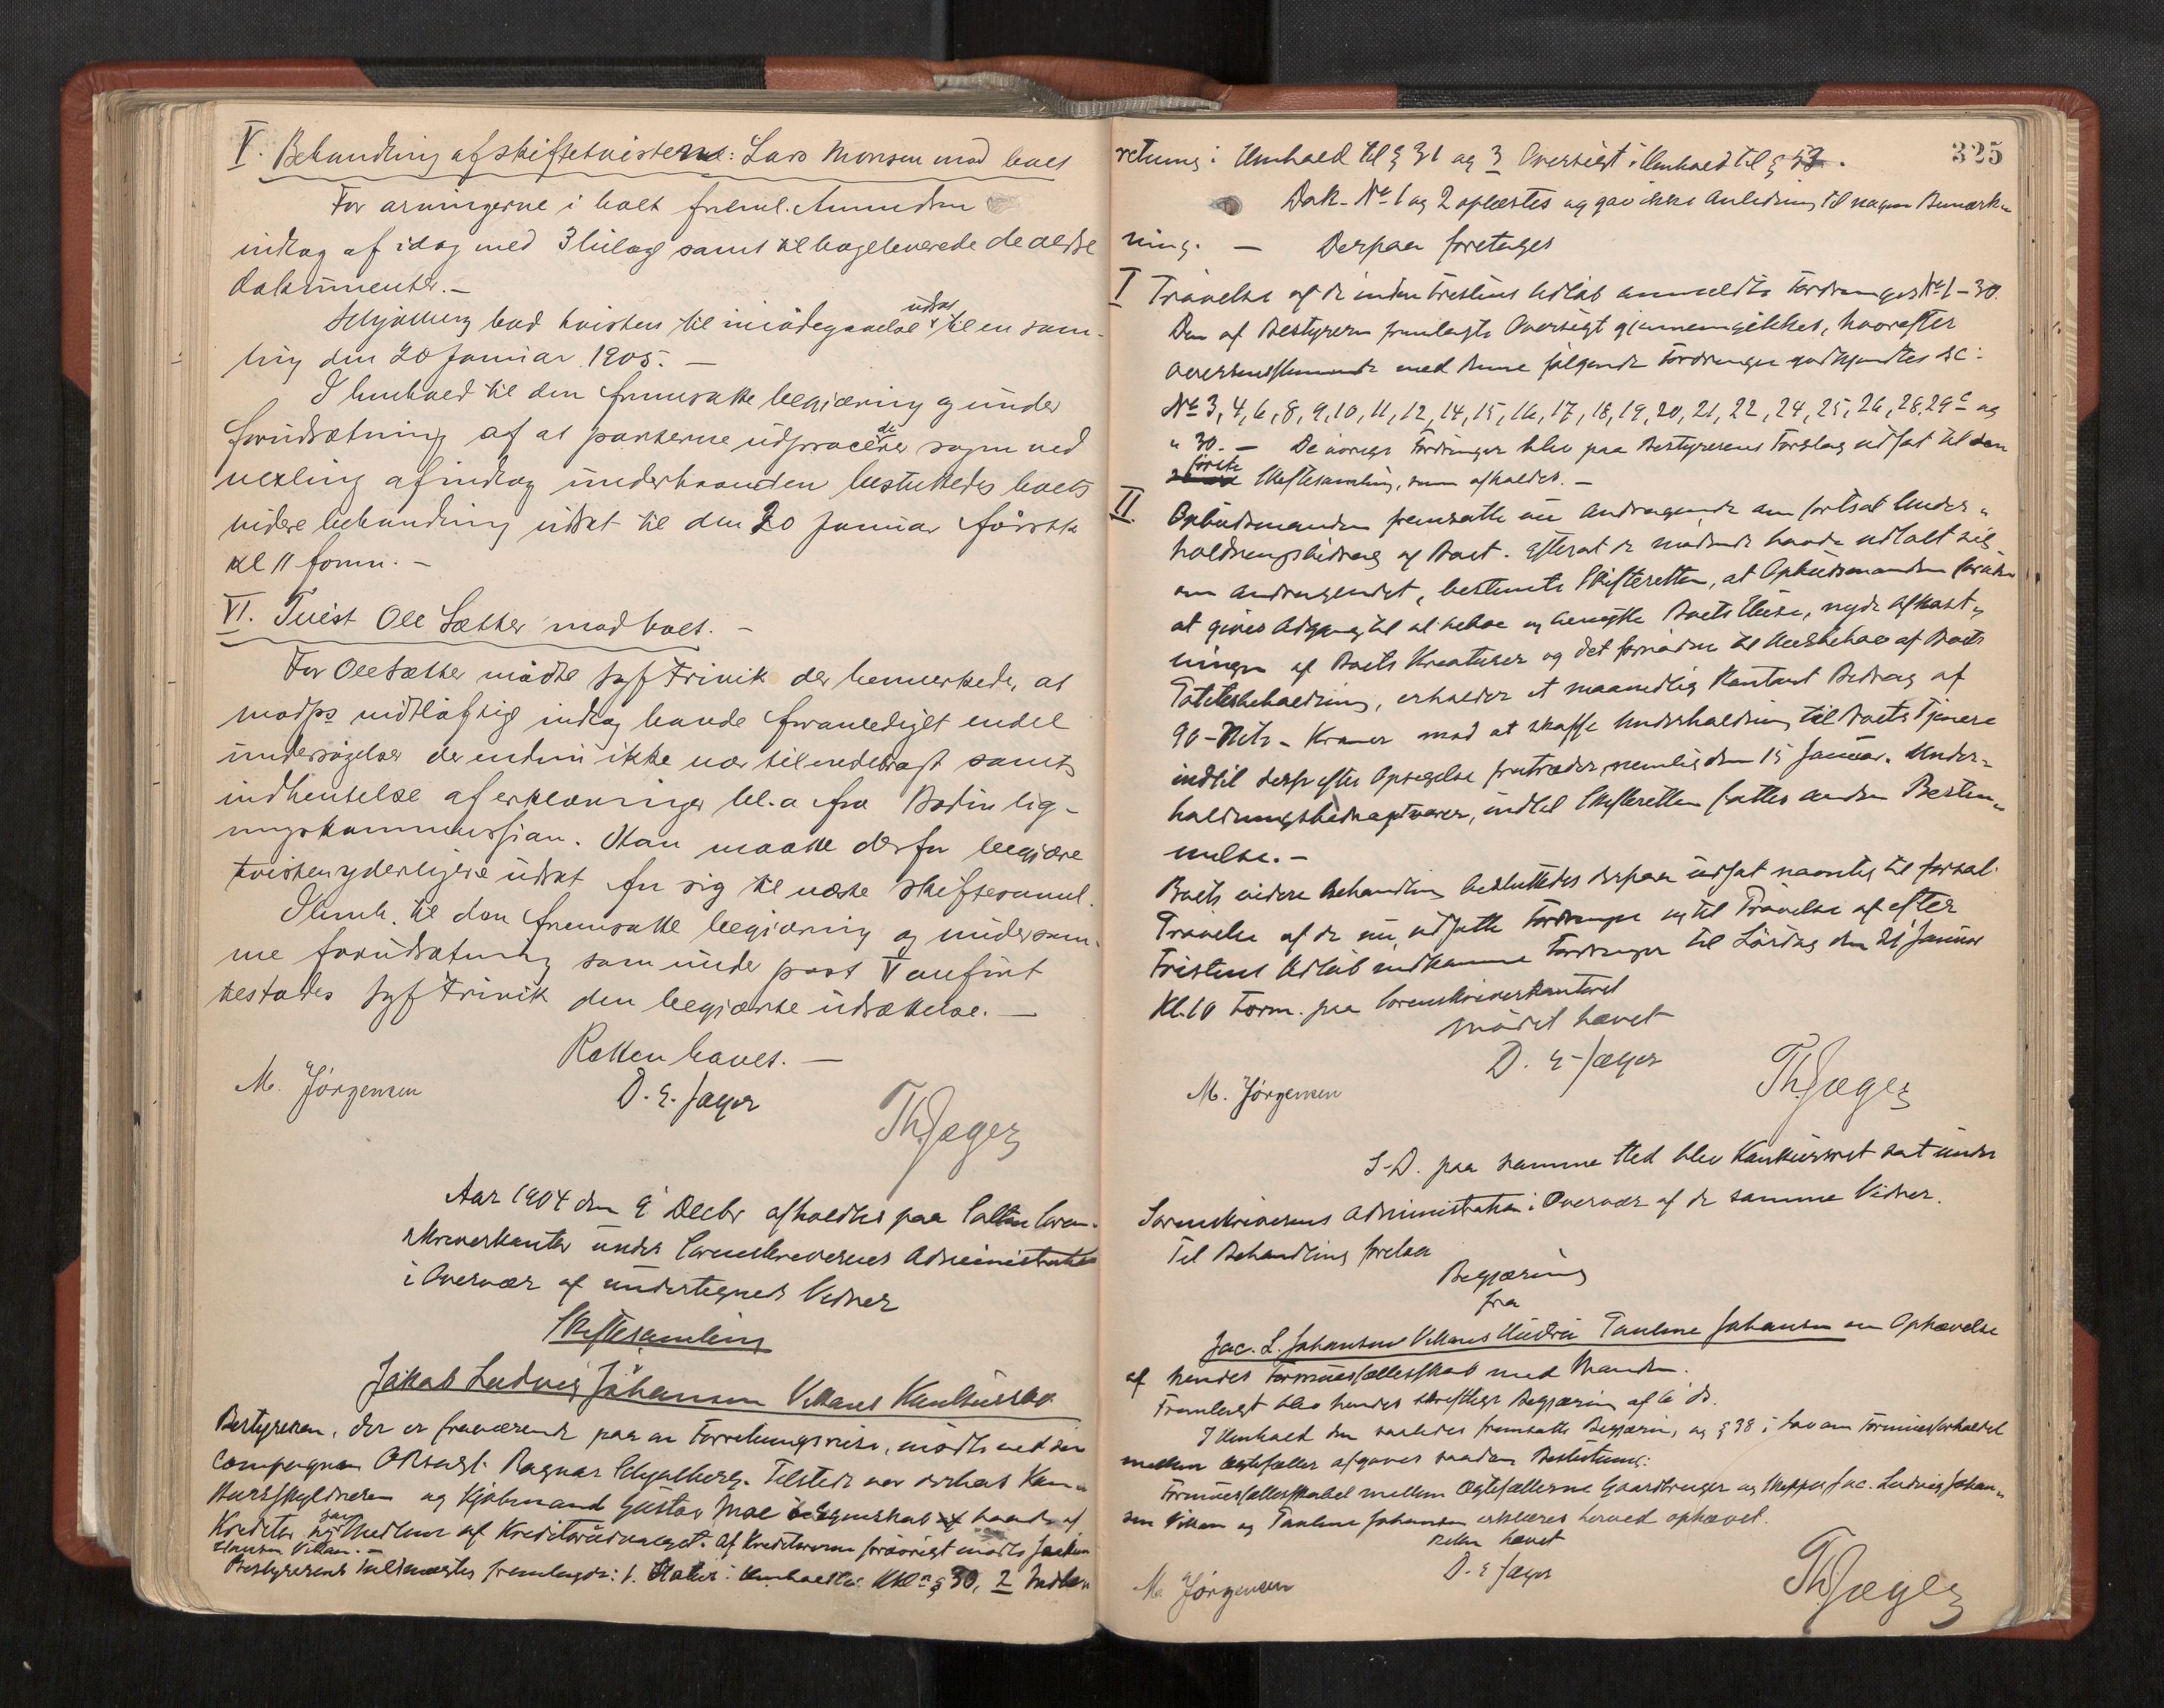 V. Behandling af skiftetvisterne: Lars Monsen mod boet
For arvingerne i boet freml. Amundsen
indlæg af idag med 3 bilag samt tilbageleverede de ældre
dokumenter. –
Schjølberg bad tvisten til imødegaaelse udsat til en sam-
ling den 20 Januar 1905. –
I henhold til den fremsatte begjæring og under
forudsætning af at parterne udprocederer sagen ved
vexling af indlæg underhaanden besluttedes boets
videre behandling udsat til den 20 Januar første
kl 11 form. –
VI. Tvist Ole Sæther mod boet. –
For Ole Sæther mødte sgf Trivik der bemerkede, at
modps vidtløftig indlæg havde foranlediget endel
undersøgelser der endnu ikke var tilendebragt samt
indhentelse af erklæringer bl.a fra Bodin lig-
ningskommission. Han maatte derfor begjære
tvisten yderligere udsat for sig til næste skiftesaml.
I henh. til den fremsatte begjæring og under sam-
me forudsætning som under post V anført
tilstodes sgf Trivik den begjærte udsættelse. –
Retten hævet. –
M. Jörgensen D. E. Jæger Th. Jæger
Aar 1904 den 9' Decbr afholdtes paa Salten Soren-
skriverkontor under Sorenskriverens Administration
i Overvær af undertegnede Vidner
Skiftesamling
i
Jakob Ludvig Johansen Vikans Konkursbo
Bestyreren, der er fraværende paa en Forretningsreise, mødte ved sin
Compagnon ORsagf. Ragnar Schjølberg. Tilstede var derhos Kon-
kursskyldneren og Kjøbmand Gustav Moe i Egenskab af baade af
Kreditor og som Medlem af Kreditorudvalget. Af Kreditorerne forøvrigt mødte
Hansen Vikan. –
Bestyrerens fuldmægtig fremlagde: 1. Status i Henhold til Kkl § 30, 2 Indbe-
325
retning i Henhold til § 31 og 3 Oversigt i Henhold til § 53.
Dok. No 1 og 2 oplæstes og gav ikke Anledning til nogen Bemærk-
ning. – Derpaa foretoges
I Prøvelse af de inden Fristens Udløb anmeldte Fordringer No 1–30.
Den af Bestyreren fremlagte Oversigt gjennemgikkes, hvorefter
overensstemmende med denne følgende Fordringer godkjendtes sc:
No 3, 4, 6, 8, 9, 10, 11, 12, 14, 15, 16, 17, 18, 19, 20, 21, 22, 24, 25, 26, 28, 29c og
" 30. – De øvrige Fordringer blev paa Bestyrerens Forslag udsat til den
første Skiftesamling, som afholdes. –
II. Opbudsmanden fremsatte nu Andragende om fortsat Under-
holdningsbidrag af Boet. Efterat de mødende havde udtalt sig
om Andragendet, bestemte Skifteretten, at Opbudsmanden foruden
at gives Adgang til at bebo og benytte Boets Huse, nyde Afkast-
ningen af Boets Kreaturer og det fornødne til Husbehov af Boets
Potetesbeholdning, erholder et maanedlig Kontant Bidrag af
90 – Niti – Kroner mod at skaffe Underholdning til Boets Tjenere
indtil disse efter Opsigelse fratræder, nemlig den 15 Januar. Under-
holdningsbidraget varer, indtil Skifteretten fatter anden Bestem-
melse. –
Boets videre Behandling besluttedes derpaa udsat navnlig til fortsat
Prøvelse af de nu udsatte Fordringer og til Prøvelse af efter
Fristens Udløb indkomne Fordringer til Lørdag den 21' Januar
Kl. 10 Form. paa Sorenskriverkontoret
Mødet hævet
M. Jörgensen D. E. Jæger Th. Jæger
S.D. paa samme Sted blev Konkursret sat under
Sorenskriverens Administration i Overvær af de samme Vidner.
Til Behandling forelaa
Begjæring
fra
Jac. L. Johansen Vikans Hustru Pauline Johansen om Ophævelse
af hendes Formuesfællesskab med Manden.
Fremlagt blev hendes skriftlige Begjæring af 6' ds.
I Henhold den saaledes fremsatte Begjæring og § 38 i Lov om Formuesforholdet
mellem Ægtefæller afgaves saadan Beslutning:
Formuesfællesskabet mellem Ægtefællerne Gaardbruger og Skipper Jac. Ludvig Johan-
sen Vikan og Pauline Johansen erklæres herved ophævet.
Retten hævet
M. Jörgensen D. E. Jæger Th. Jæger